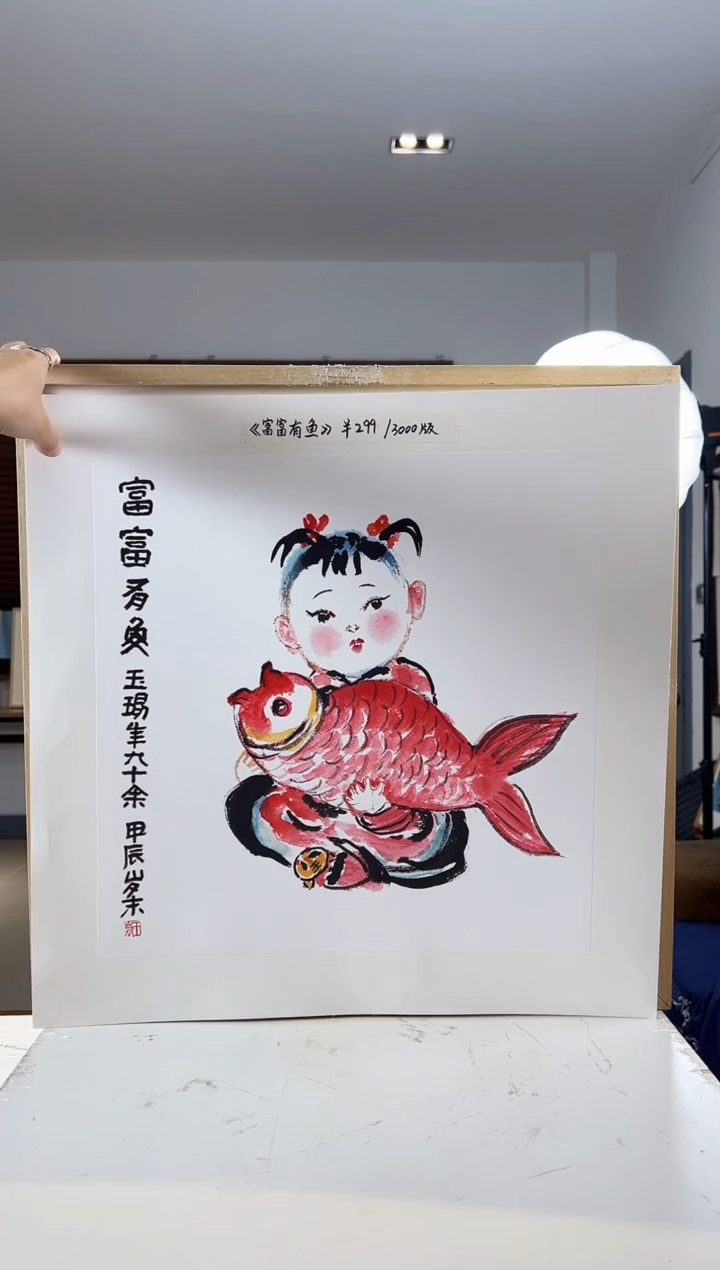 《富富有鱼》 ¥299 /3000版
富富有魚 玉瑒年九十余 甲辰岁末